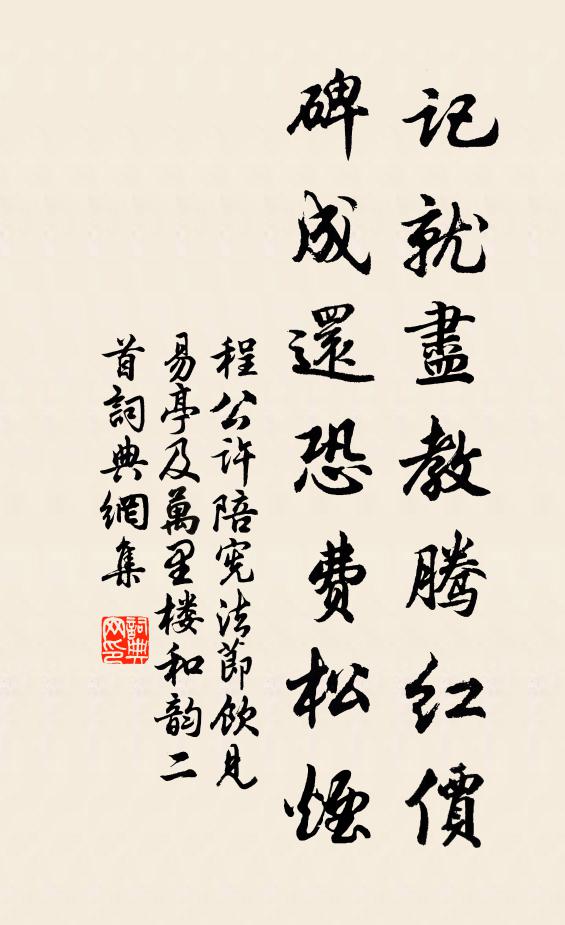 記就盡教騰紅價
碑成還恐費松煙
程公許陪宪法節飲見
易亭及萬里楼和韵二
首詞典網集
詞典网印